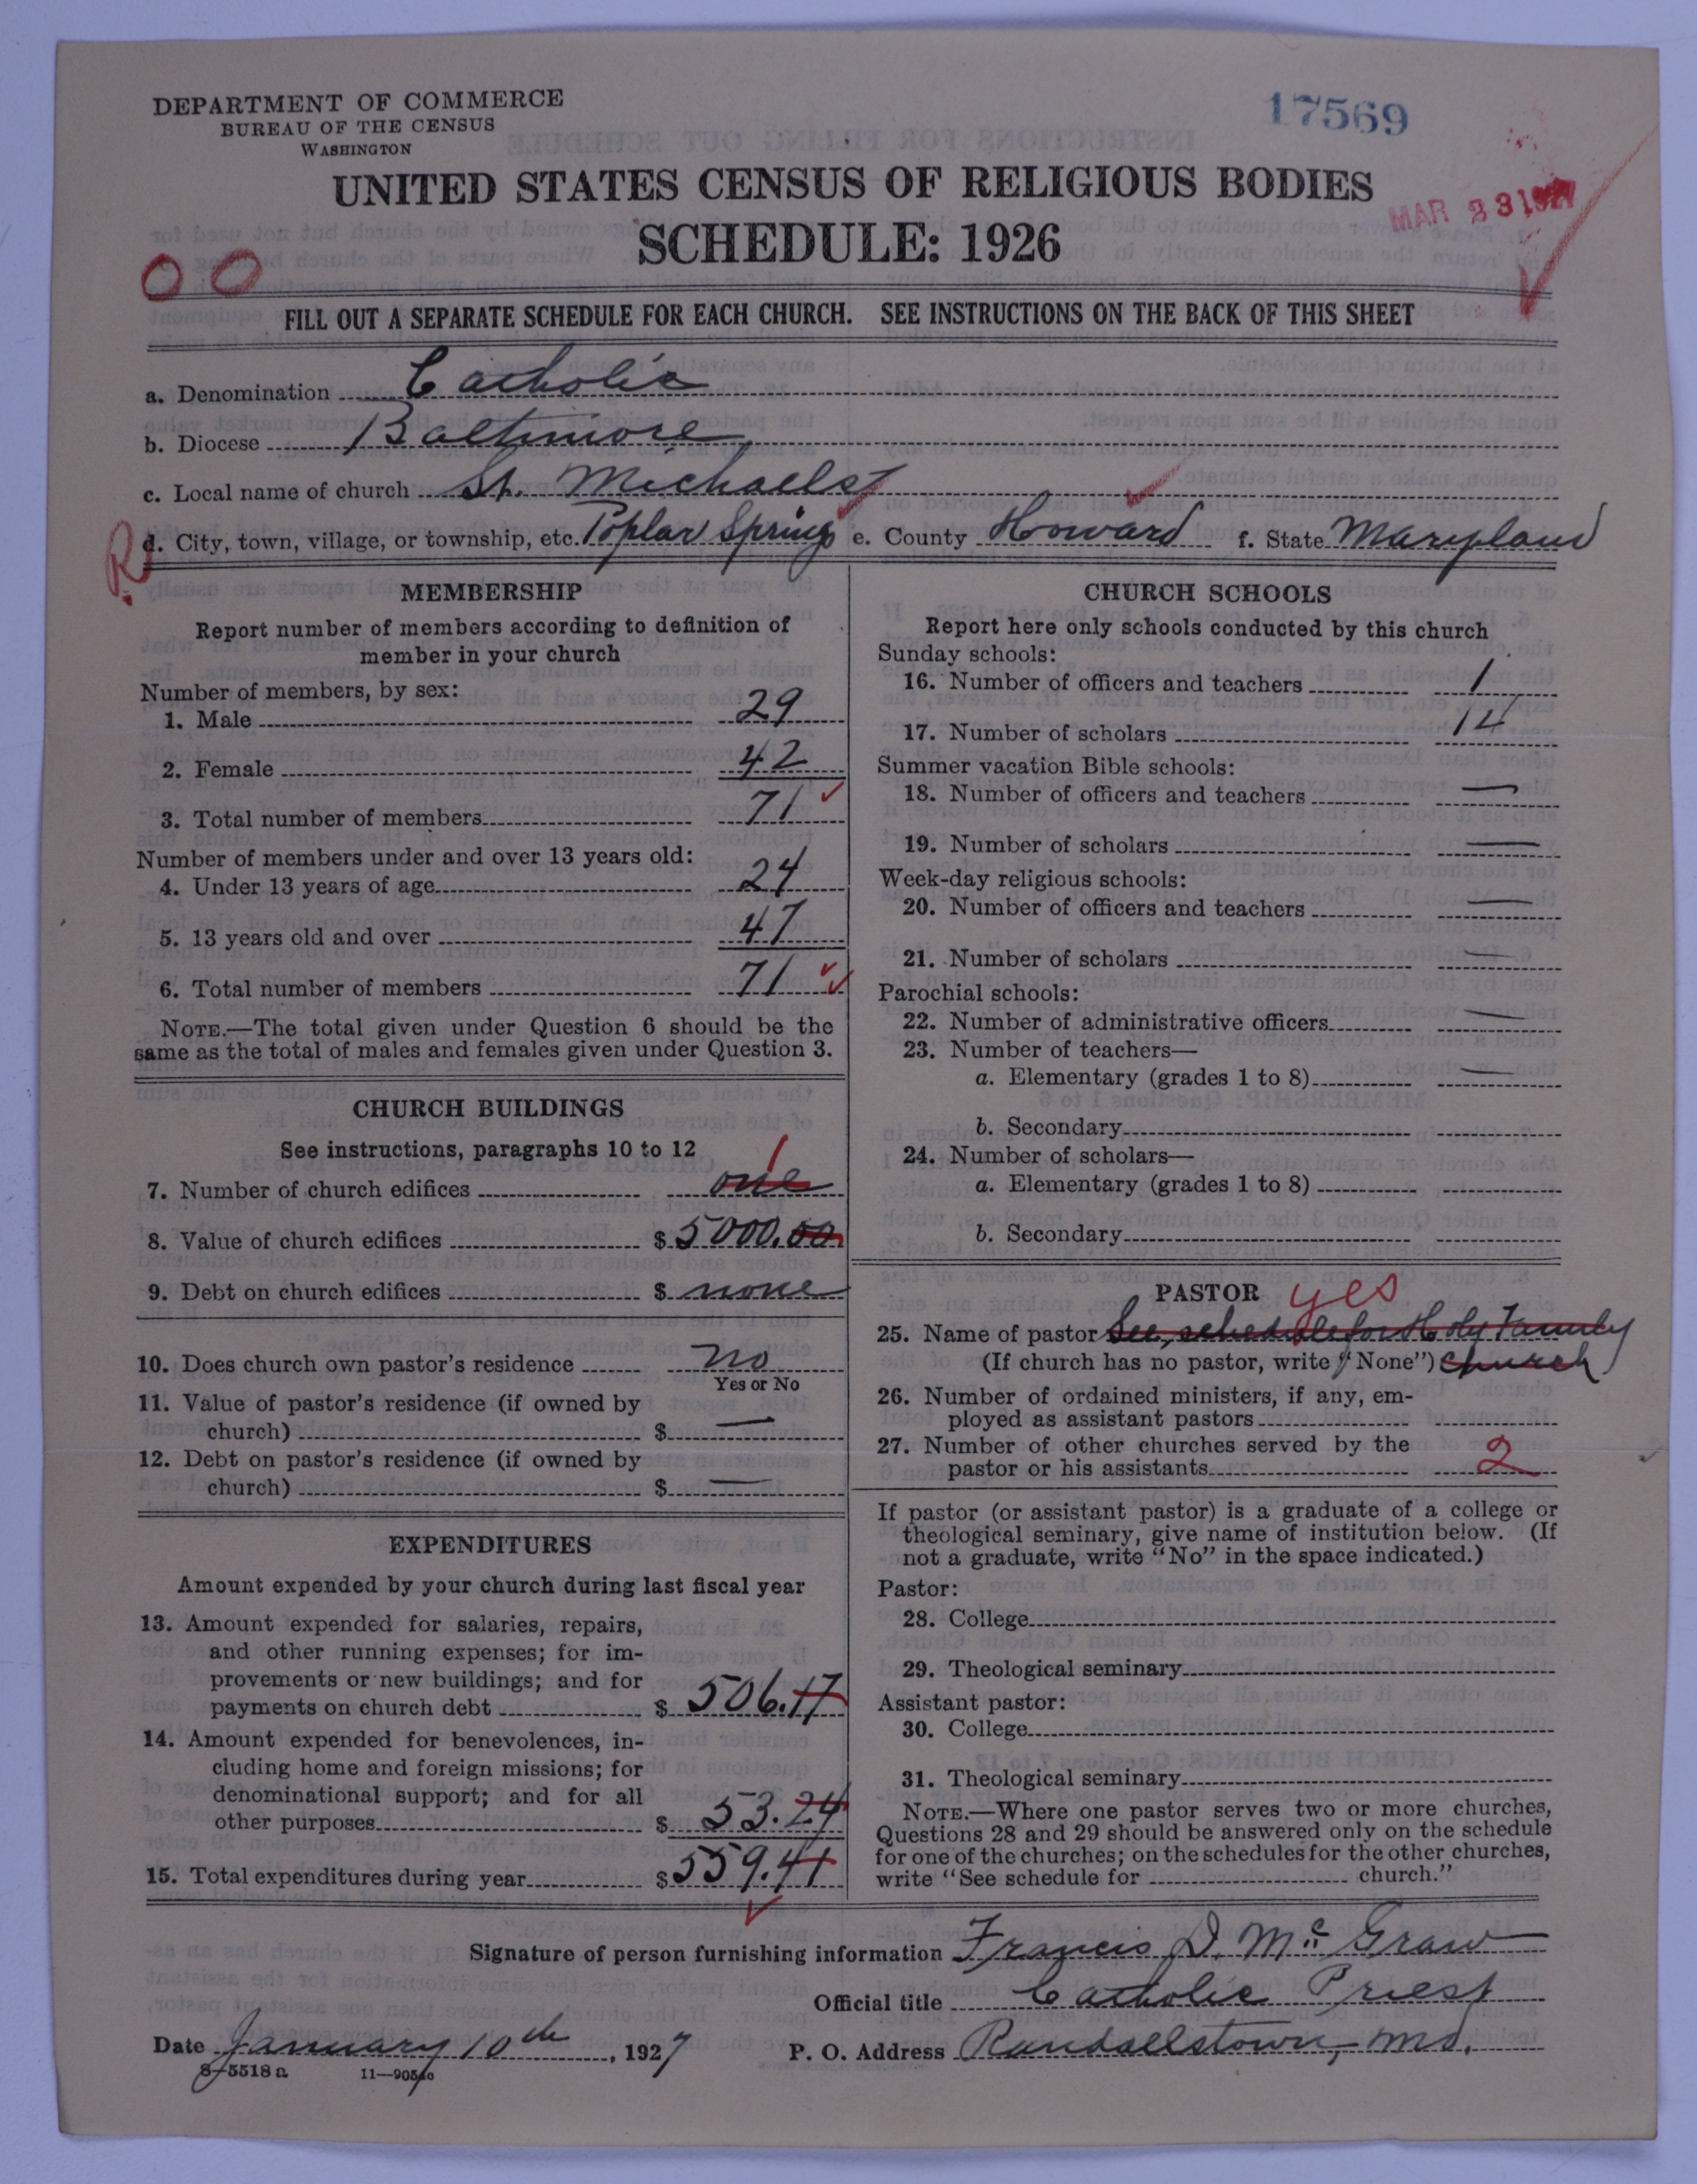 DEPARTMENT OF COMMERCE
BUREAU OF THE CENSUS
WASHINGTON
17569
UNITED STATES CENSUS OF RELIGIOUS BODIES
SCHEDULE: 1926
MAR 23 1927
OO
FILL OUT A SEPARATE SCHEDULE FOR EACH CHURCH. SEE INSTRUCTIONS ON THE BACK OF THIS SHEET
a. Denomination Catholic
b. Diocese Baltimore
c. Local name of church St. Michaels
R d. City, town, village, or township, etc. Poplar Springs e. County Howard f. State Maryland
MEMBERSHIP
Report number of members according to definition of
member in your church
Number of members, by sex:
1. Male 29
2. Female 42
3. Total number of members 71
Number of members under and over 13 years old:
4. Under 13 years of age 24
5. 13 years old and over 47
6. Total number of members 71
NOTE.—The total given under Question 6 should be the
same as the total of males and females given under Question 3.
CHURCH BUILDINGS
See instructions, paragraphs 10 to 12
1
7. Number of church edifices one
8. Value of church edifices $ 5000.00
9. Debt on church edifices $ none
10. Does church own pastor's residence no
Yes or No
11. Value of pastor's residence (if owned by
church) $ —
12. Debt on pastor's residence (if owned by
church) $ —
EXPENDITURES
Amount expended by your church during last fiscal year
13. Amount expended for salaries, repairs,
and other running expenses; for im-
provements or new buildings; and for
payments on church debt $ 506.17
14. Amount expended for benevolences, in-
cluding home and foreign missions; for
denominational support; and for all
other purposes $ 53.24
15. Total expenditures during year $ 559.41
CHURCH SCHOOLS
Report here only schools conducted by this church
Sunday schools:
16. Number of officers and teachers 1
17. Number of scholars 14
Summer vacation Bible schools:
18. Number of officers and teachers —
19. Number of scholars —
Week-day religious schools:
20. Number of officers and teachers —
21. Number of scholars —
Parochial schools:
22. Number of administrative officers —
23. Number of teachers—
a. Elementary (grades 1 to 8) —
b. Secondary
24. Number of scholars—
a. Elementary (grades 1 to 8)
b. Secondary
PASTOR yes
25. Name of pastor See schedule for Holy Family
(If church has no pastor, write "None") church
26. Number of ordained ministers, if any, em-
ployed as assistant pastors
27. Number of other churches served by the
pastor or his assistants 2
If pastor (or assistant pastor) is a graduate of a college or
theological seminary, give name of institution below. (If
not a graduate, write "No" in the space indicated.)
Pastor:
28. College
29. Theological seminary
Assistant pastor:
30. College
31. Theological seminary
NOTE.—Where one pastor serves two or more churches,
Questions 28 and 29 should be answered only on the schedule
for one of the churches; on the schedules for the other churches,
write "See schedule for church."
Signature of person furnishing information Francis D. McGraw
Official title Catholic Priest
Date January 10th, 1927 P. O. Address Randallstown, Md.
8-5518a 11—9054a